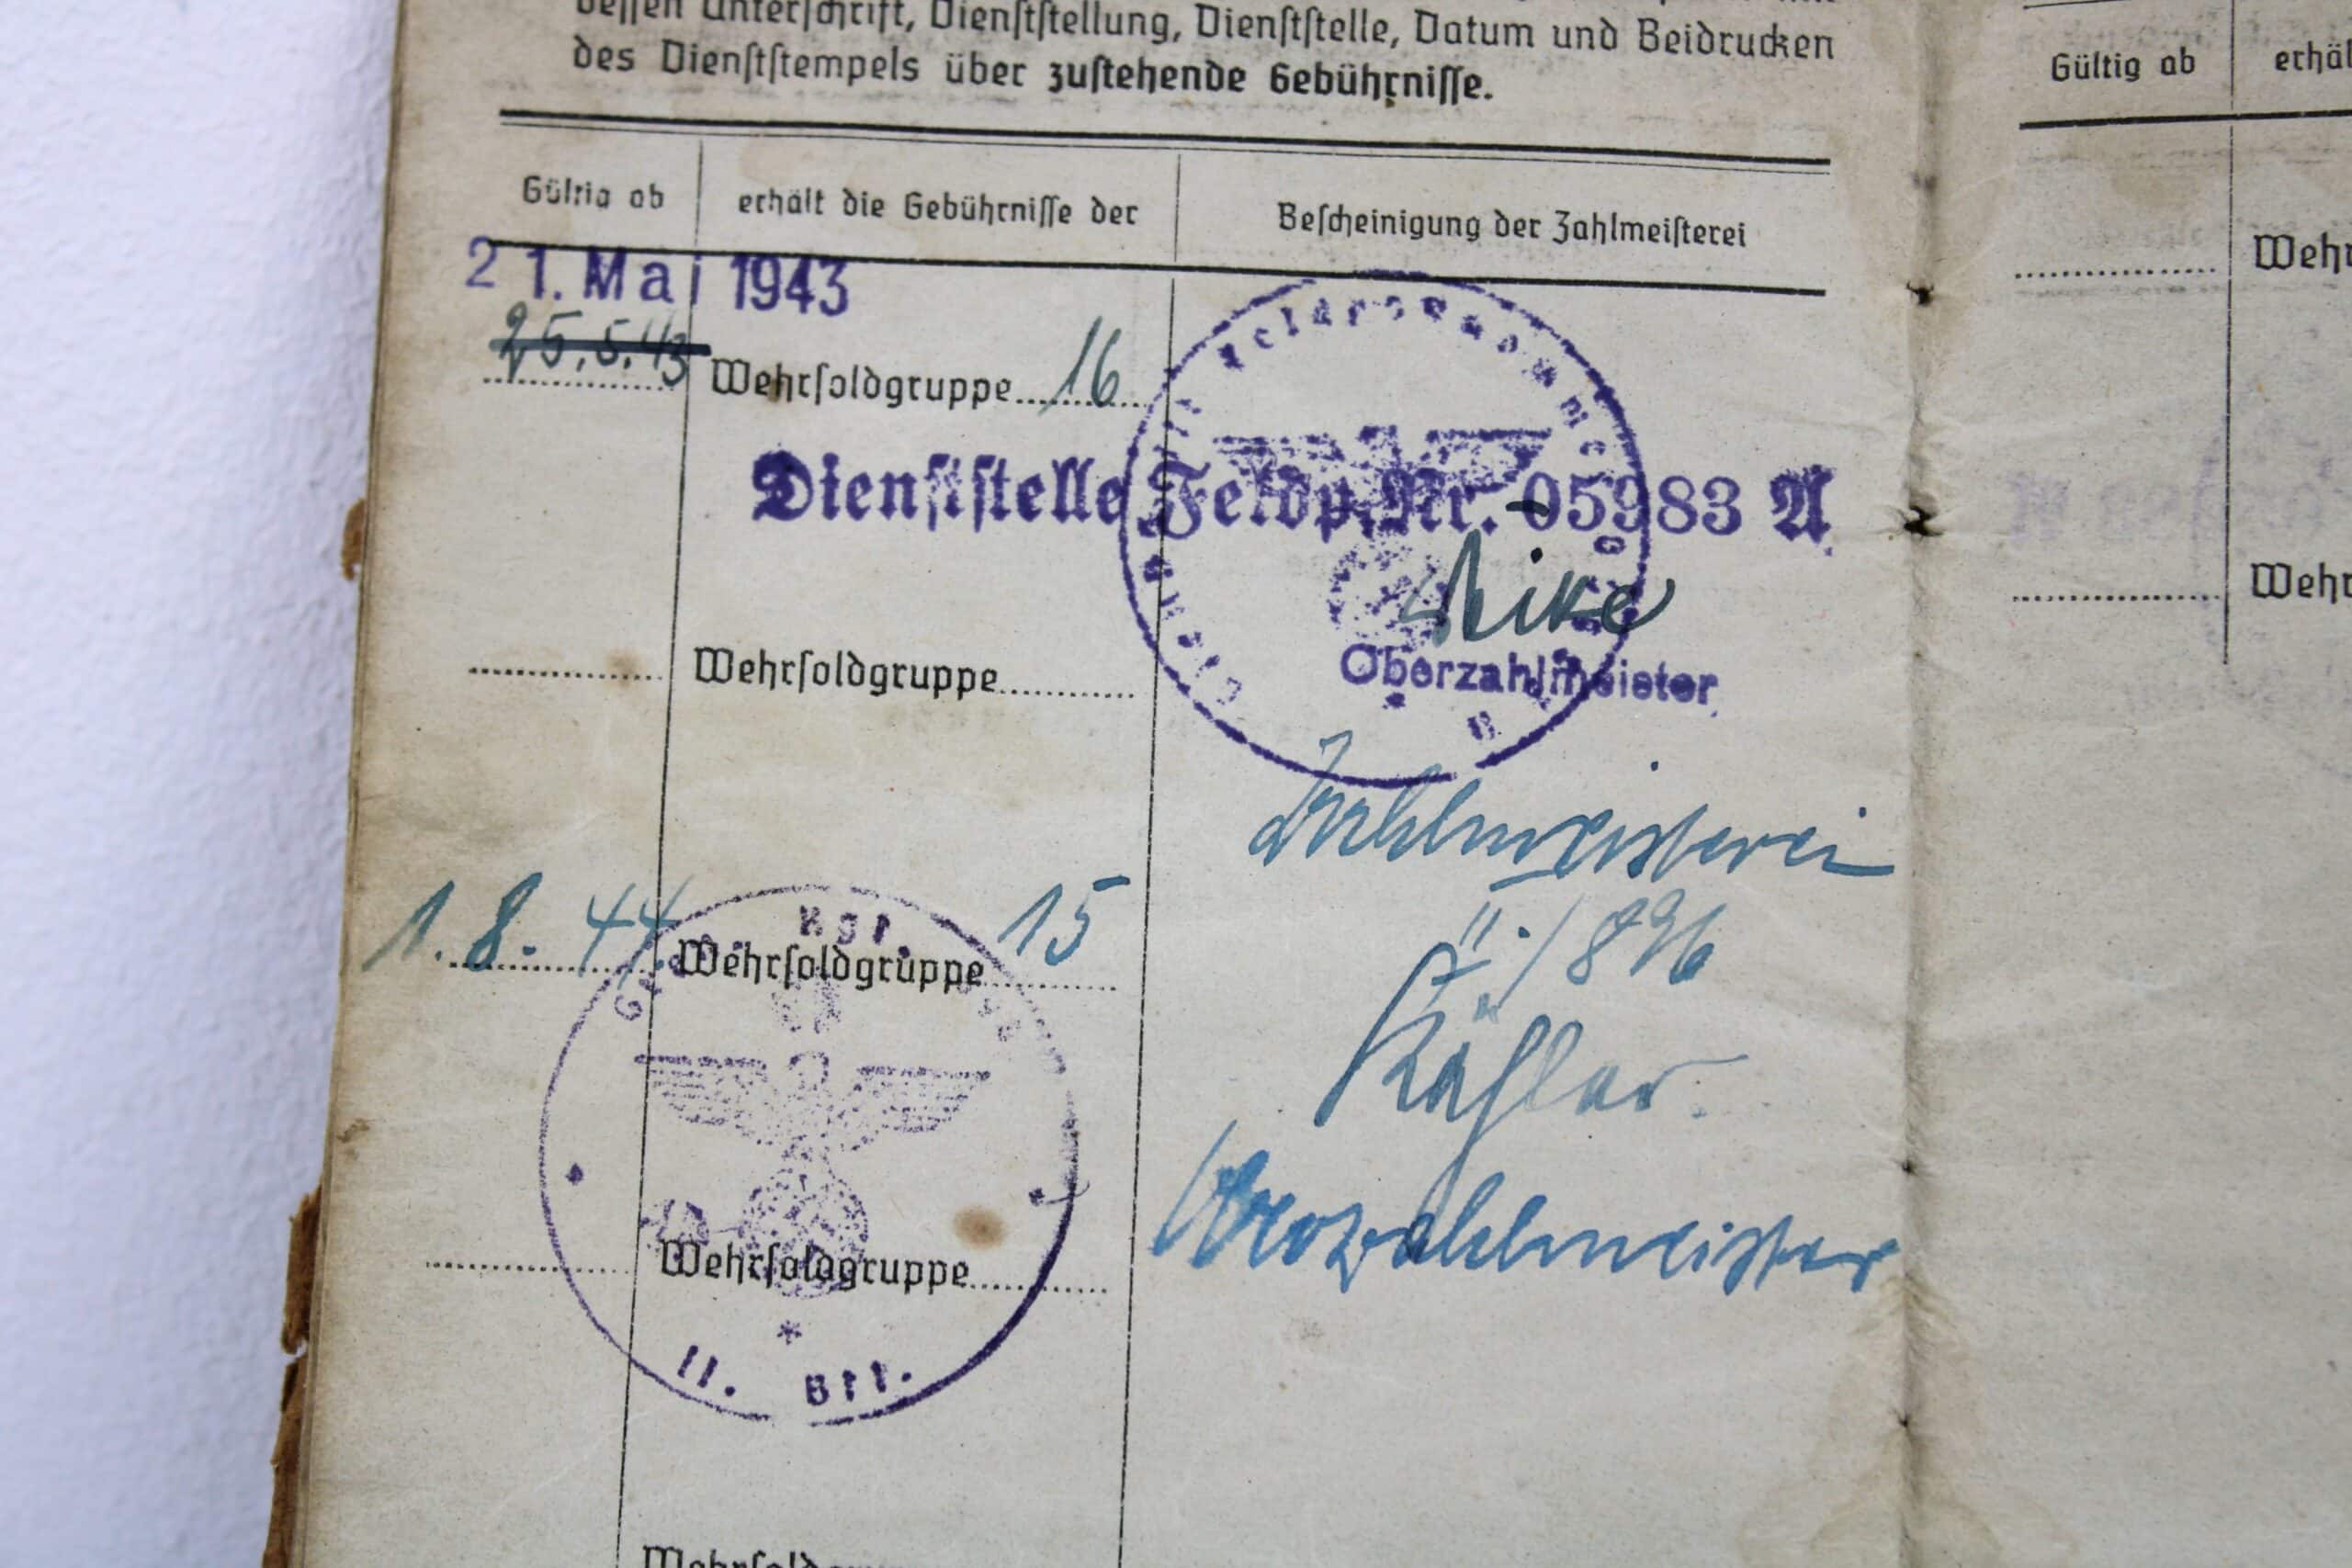 dessen Unterschrift, Dienststellung, Dienststelle, Datum und Beidrucken
des Dienststempels über zustehende Gebührnisse.
Gültig ab erhält die Gebührnisse der Bescheinigung der Zahlmeisterei
21. Mai 1943
25.5.43 Wehrsoldgruppe 16
Dienststelle Feldp. Nr. 05983 A
Oberzahlmeister
Wehrsoldgruppe
Zahlmeisterei
1. 8. 44. Wehrsoldgruppe 15
II./896
Rgt.
Oberzahlmeister
Wehrsoldgruppe
II. Btl.
Gültig ab erhäl
Wehr
Wehr